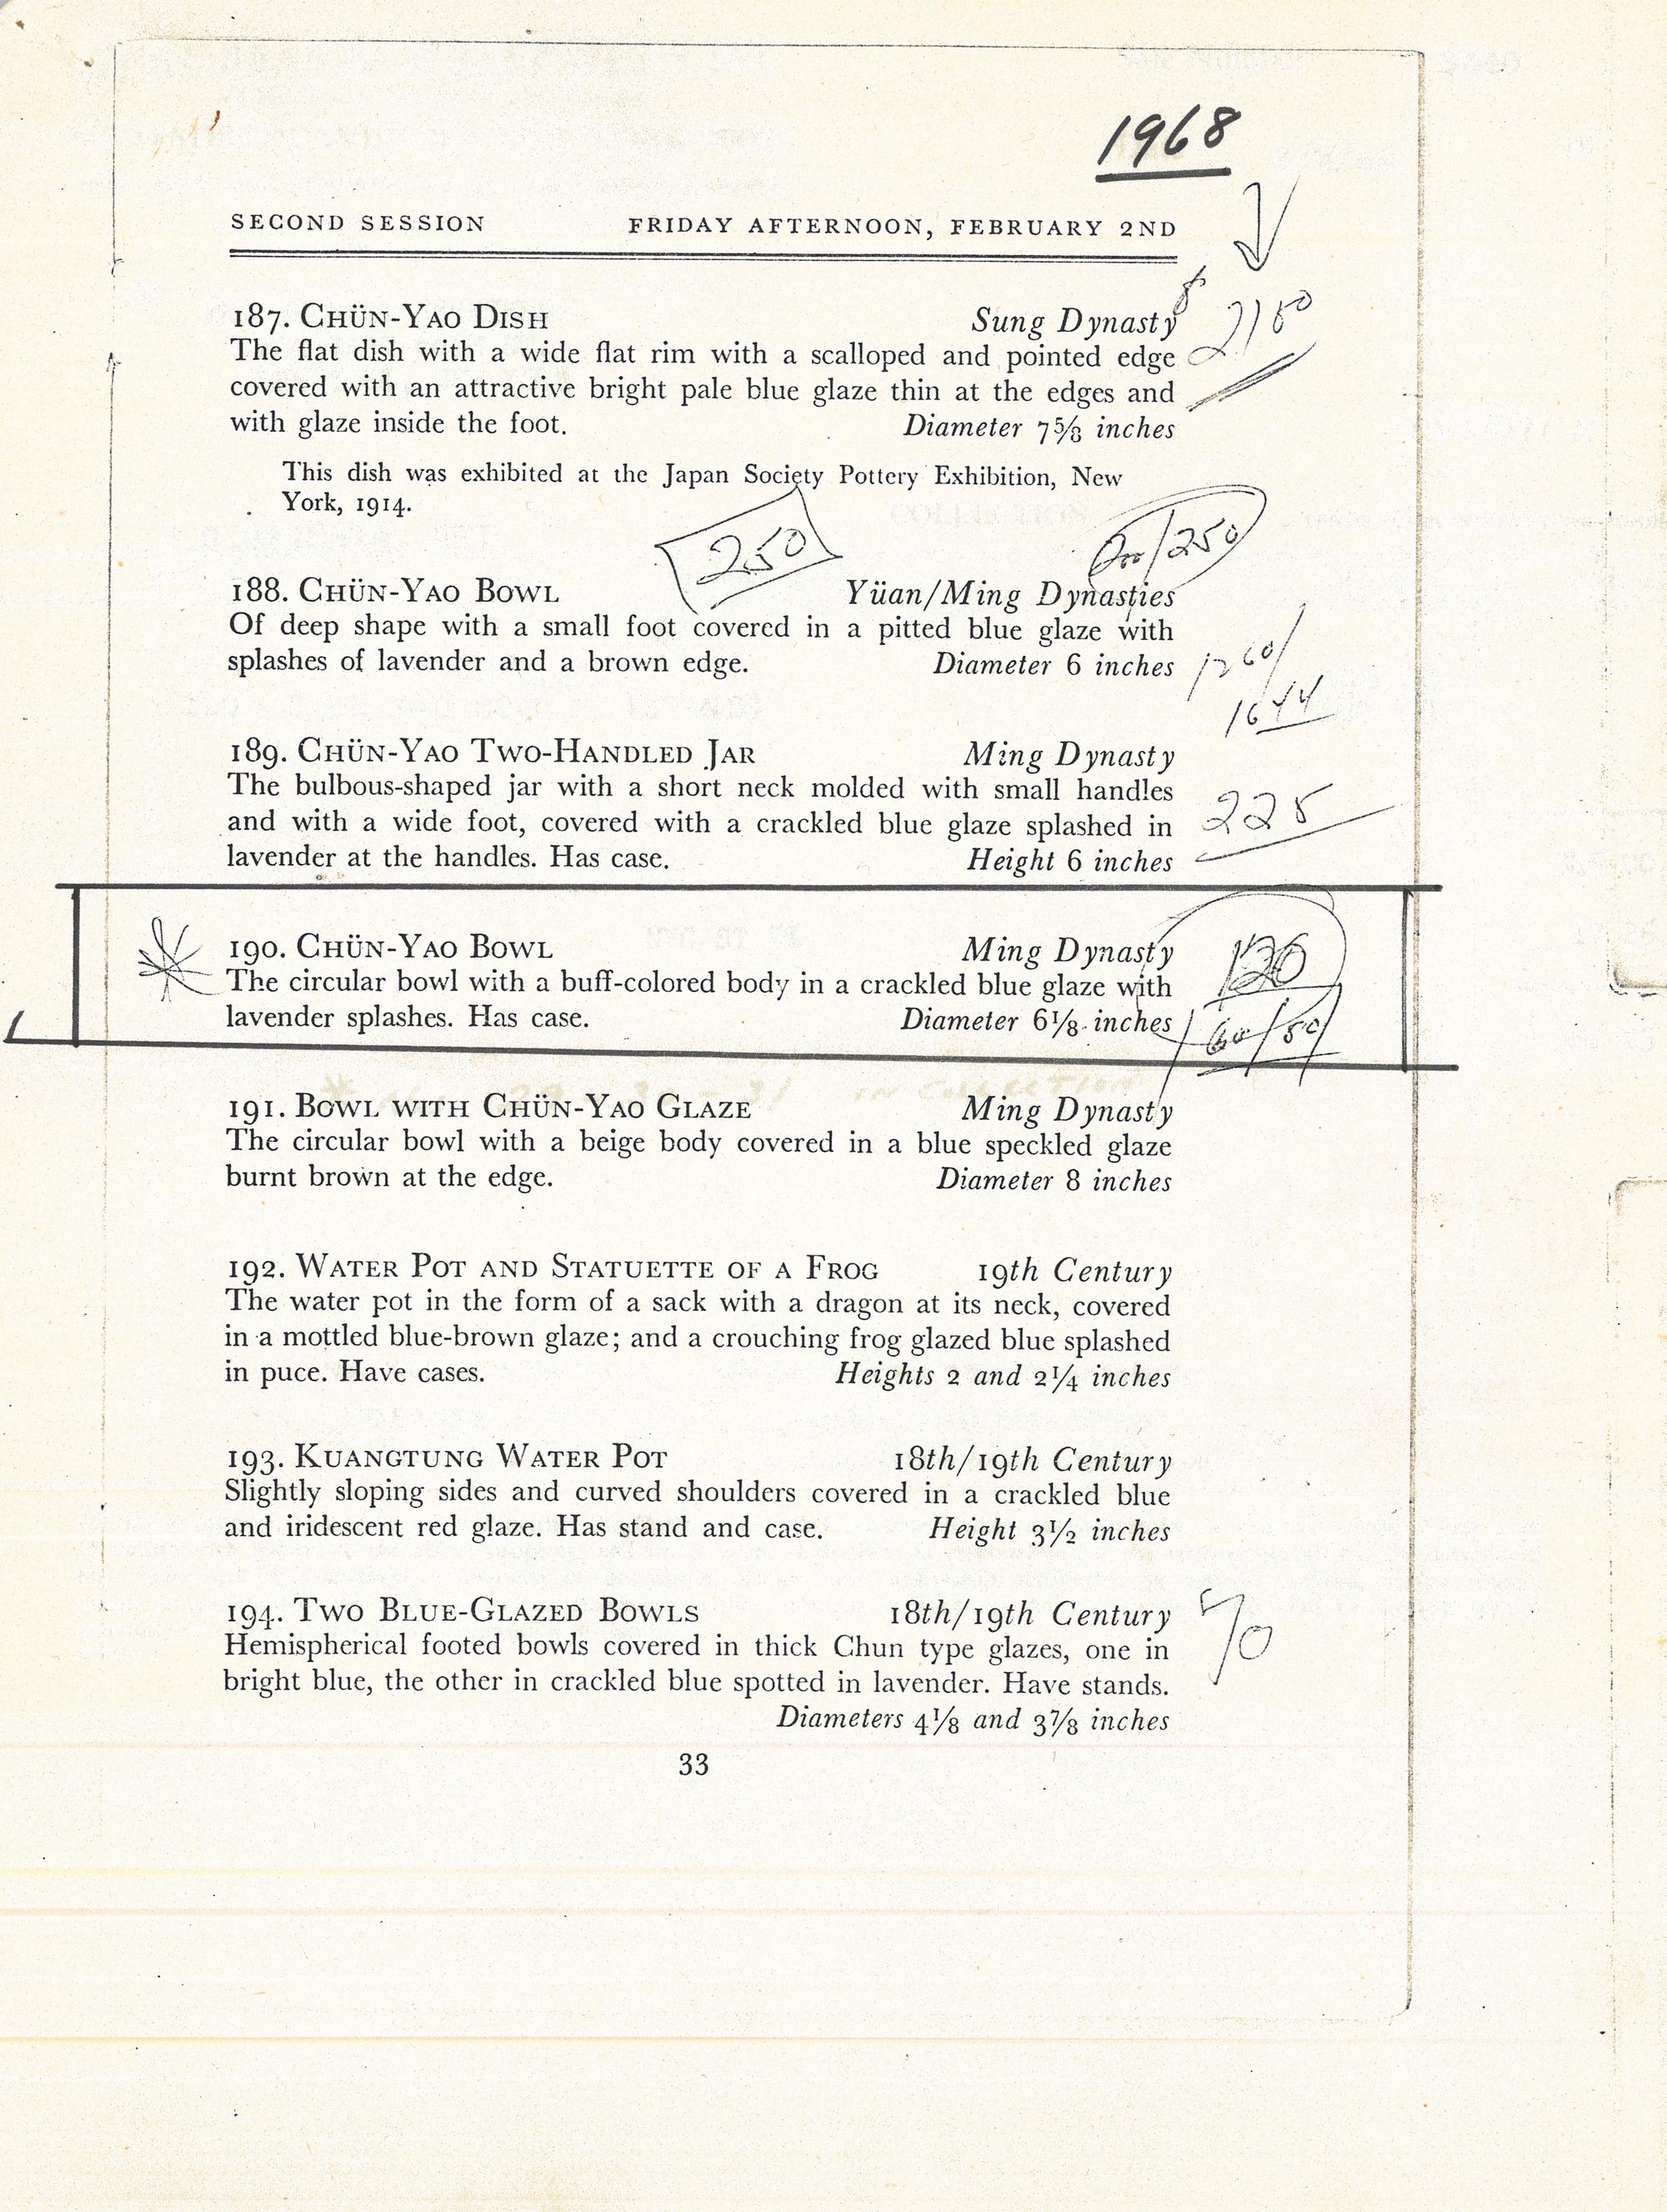 1968
SECOND SESSION FRIDAY AFTERNOON, FEBRUARY 2ND
187. CHÜN-YAO DISH Sung Dynasty
The flat dish with a wide flat rim with a scalloped and pointed edge
covered with an attractive bright pale blue glaze thin at the edges and
with glaze inside the foot. Diameter 7⅝ inches
This dish was exhibited at the Japan Society Pottery Exhibition, New
York, 1914.
250 /250
188. CHÜN-YAO BOWL Yüan/Ming Dynasties
Of deep shape with a small foot covered in a pitted blue glaze with
splashes of lavender and a brown edge. Diameter 6 inches
189. CHÜN-YAO TWO-HANDLED JAR Ming Dynasty
The bulbous-shaped jar with a short neck molded with small handles
and with a wide foot, covered with a crackled blue glaze splashed in 225
lavender at the handles. Has case. Height 6 inches
190. CHÜN-YAO BOWL Ming Dynasty
The circular bowl with a buff-colored body in a crackled blue glaze with
lavender splashes. Has case. Diameter 6⅛ inches
191. BOWL WITH CHÜN-YAO GLAZE Ming Dynasty
The circular bowl with a beige body covered in a blue speckled glaze
burnt brown at the edge. Diameter 8 inches
192. WATER POT AND STATUETTE OF A FROG 19th Century
The water pot in the form of a sack with a dragon at its neck, covered
in a mottled blue-brown glaze; and a crouching frog glazed blue splashed
in puce. Have cases. Heights 2 and 2¼ inches
193. KUANGTUNG WATER POT 18th/19th Century
Slightly sloping sides and curved shoulders covered in a crackled blue
and iridescent red glaze. Has stand and case. Height 3½ inches
194. TWO BLUE-GLAZED BOWLS 18th/19th Century
Hemispherical footed bowls covered in thick Chun type glazes, one in 70
bright blue, the other in crackled blue spotted in lavender. Have stands.
Diameters 4⅛ and 3⅞ inches
33